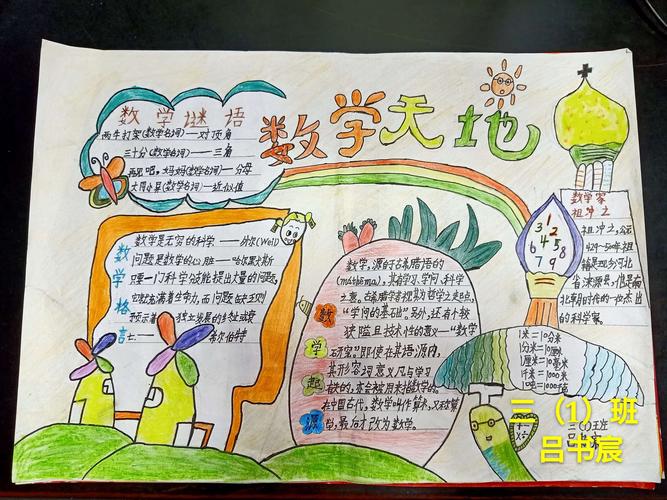 数学天地
数学谜语
两牛打架(数学名词)——对顶角
三十分(数学名词)——三角
再见吧,妈妈(数学名词)——分母
大同小异(数学名词)——近似值
数学格言
数学是无穷的科学——外尔(Weil)
问题是数学的心脏——哈尔莫斯
只要一门科学分支能提出大量的问题,
它就充满着生命力,而问题缺乏则
预示着独立发展的终止或衰
亡.——希尔伯特
数学起源
数学,源于古希腊语的
(mathema),其有学习、学问、科学
之意.古希腊学者视其为哲学之起点,
"学问的基础"另外,还有个较
狭隘且技术性的意义—"数学
研究"即使在其语源内,
其形容词意义凡与学习
有关的,亦会被用来指数学的.
在中国古代,数学叫作算术,又称算
学,最后才改为数学。
1
3 2
6 4 5 8
7 9
数学家
祖冲之
祖冲之,公元
429-500年
籍是现今河北
省涞源县,他是南
北朝时代的一位杰出
的科学家。
1米=10分米
1分米=10厘米
1厘米=10毫米
1千米=1000米
1吨=1000千克
+ -
× ÷
三(1)班
吕书宸
二（1）班
吕书宸